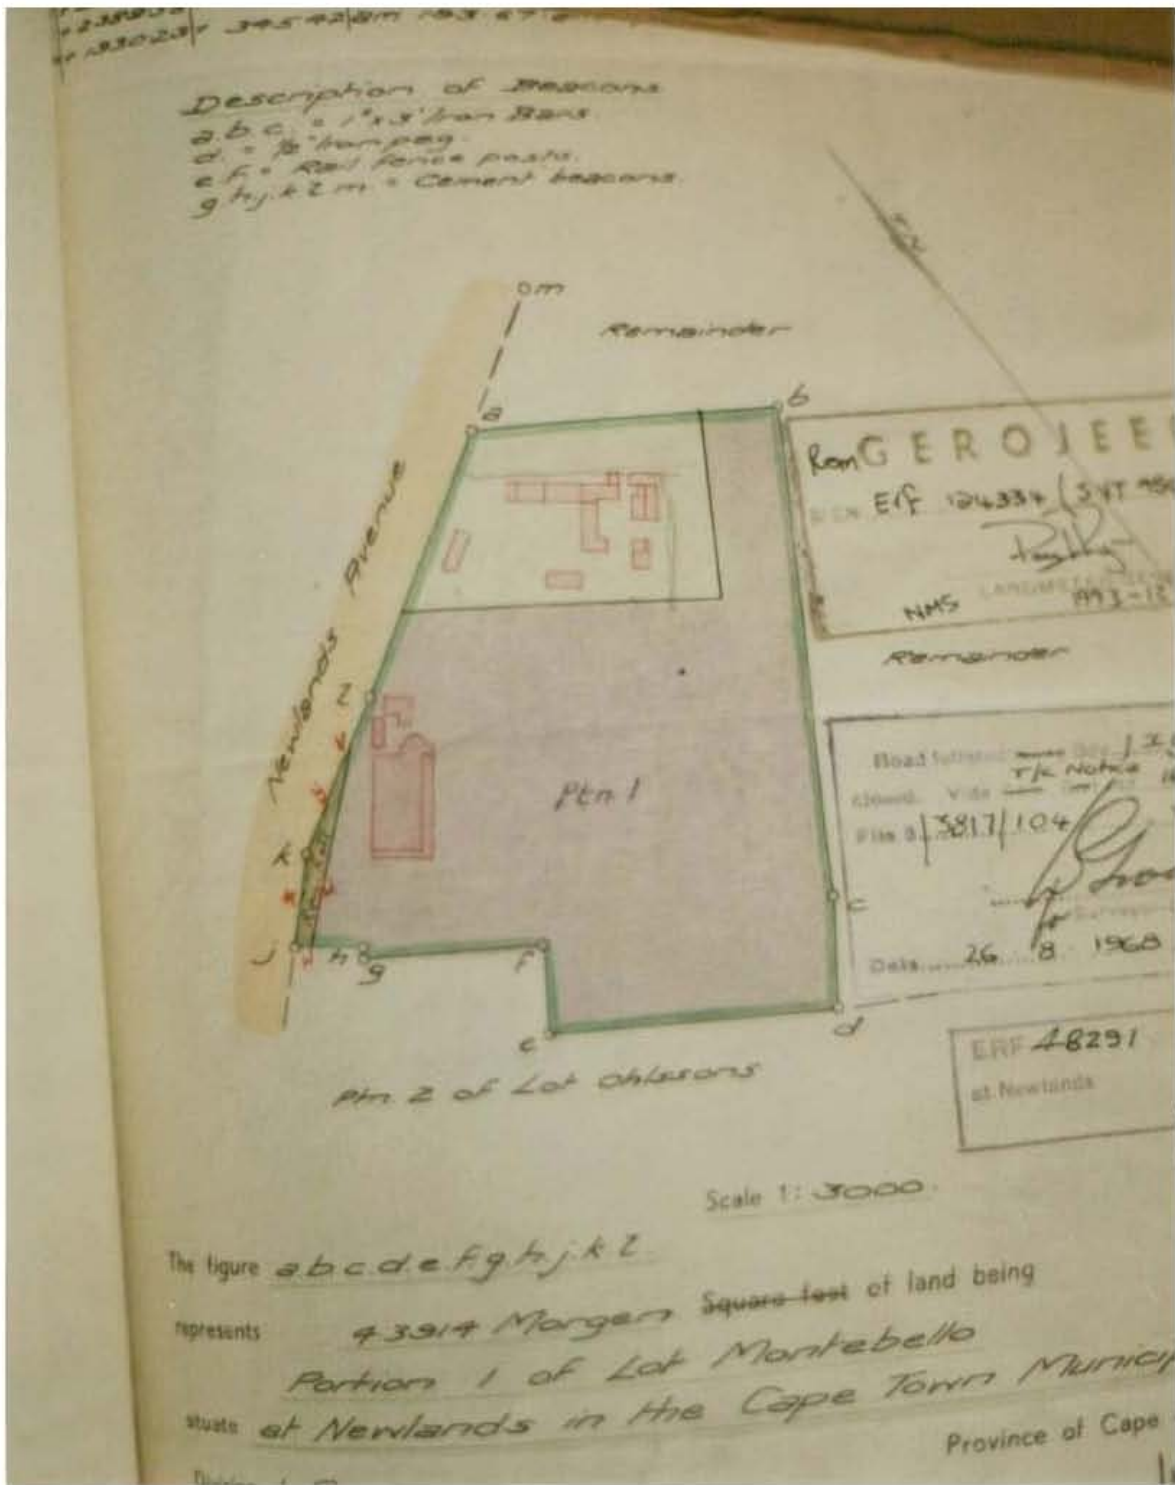 Description of Beacons
a.b.c. = 1" x 3' Iron Bars
d. = ½" Iron peg.
e.f. = Rail fence posts.
g.h.j.k.l.m = Cement beacons.
m
Remainder
a
b
Newlands Avenue
Rem GEROJEE
Erf 124334
NMS
1993-12
Remainder
l
Ptn. 1
k
j
h
g
f
e
d
c
Road
T/C Notice
closed. Vide
File S/3817/104
for Surveyor
Date 26 8 1968
ERF 48291
at Newlands
Ptn. 2 of Lot Ohlssons
Scale 1: 3000.
The figure a.b.c.d.e.f.g.h.j.k.l
represents 4.3914 Morgen Square feet of land being
Portion 1 of Lot Montebello
situate at Newlands in the Cape Town Municip
Province of Cape